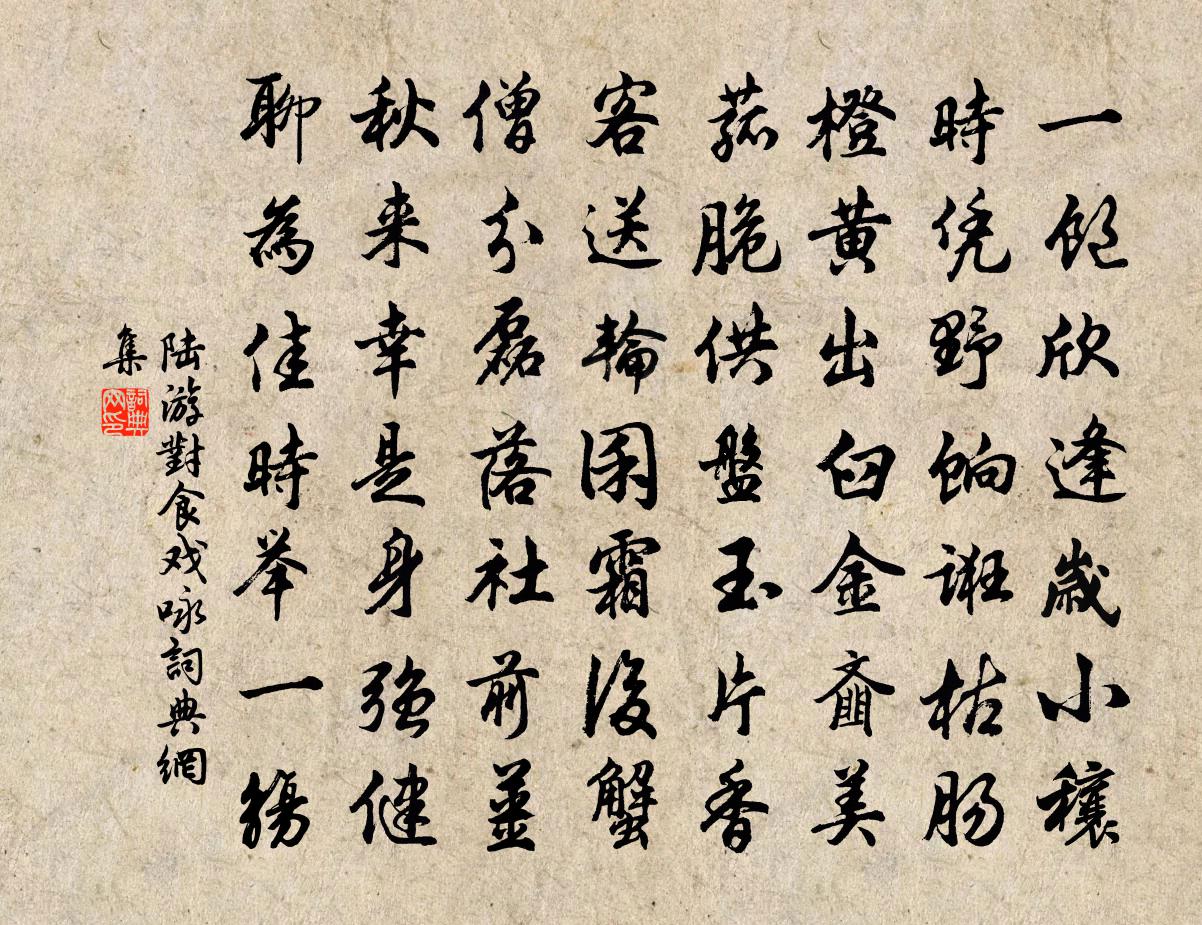 一飽欣逢歲小穰
時凭野餉誑枯腸
橙黄出臼金虀美
菰脆供盤玉片香
客送輪囷霜後蟹
僧分磊落社前薑
秋来幸是身强健
聊為佳時举一觴
陆游對食戏咏詞典網
集
詞典网印